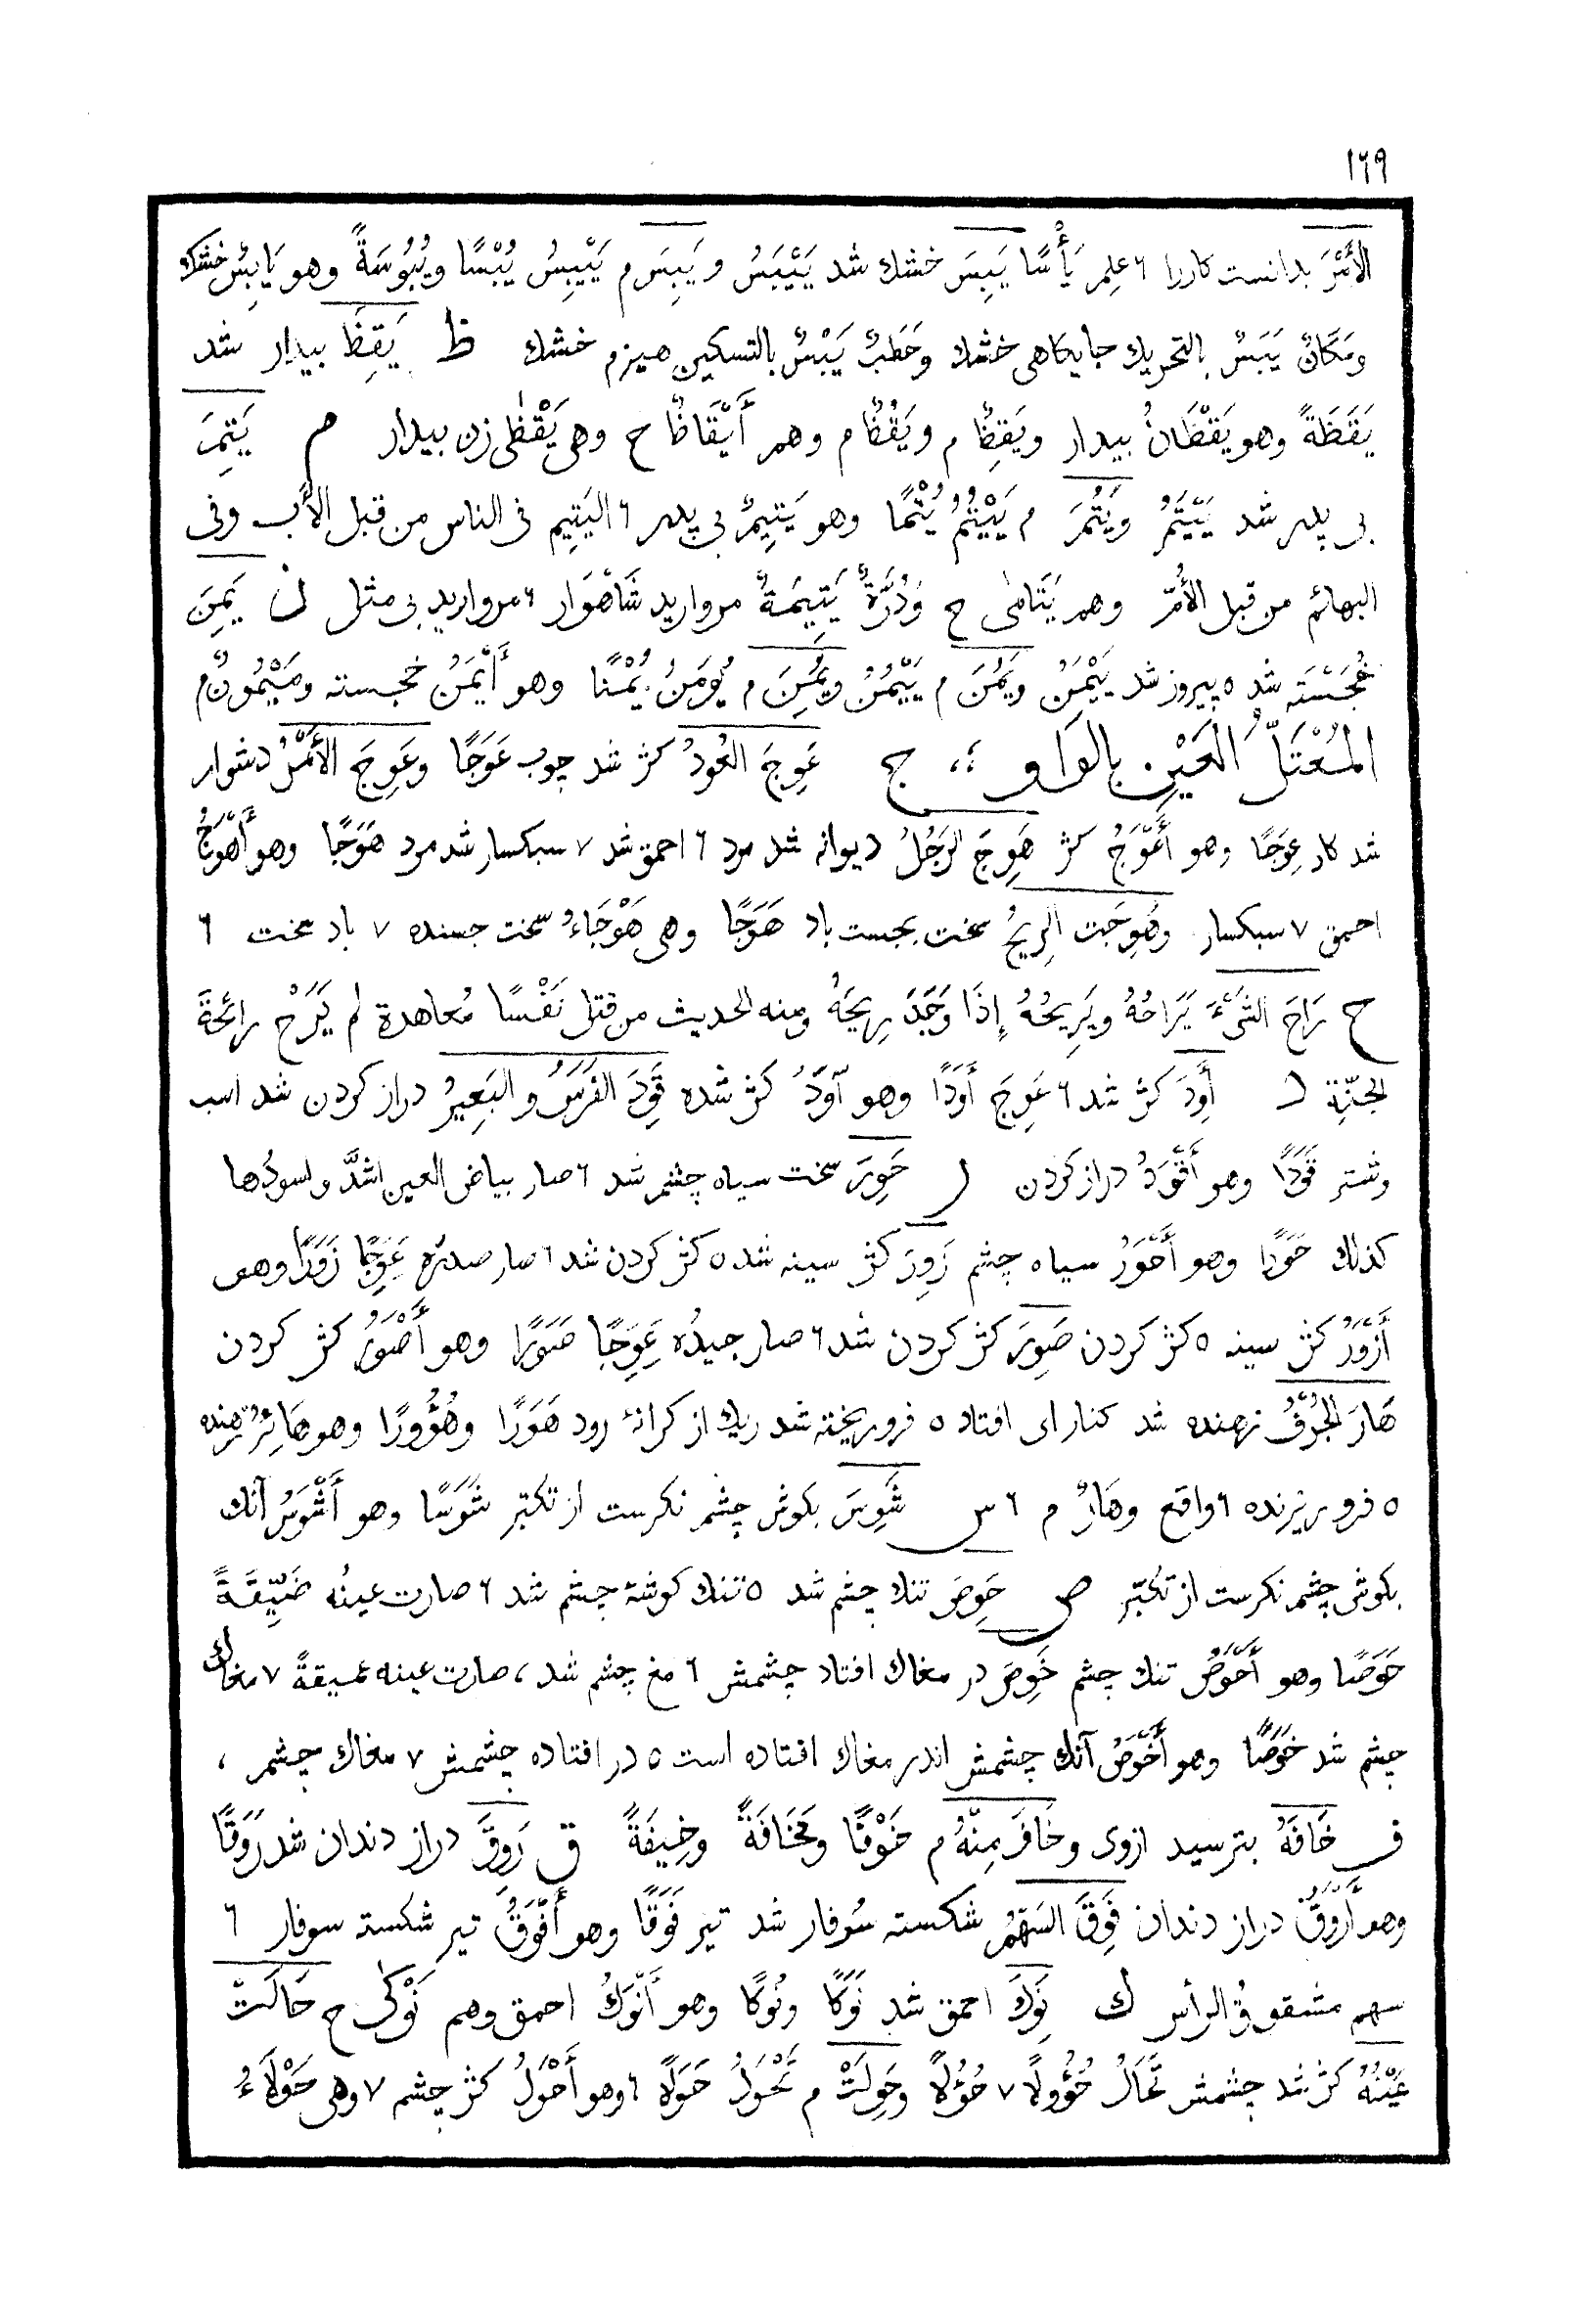 ١٦٩
الأَمْرَ بدانست کاررا ٦ عِلِم يَأْسًا يَبِسَ خشك شد يَيْبَسُ و يَبِسَ م يَيْبِسُ يُبْسًا ويُبُوسَةً وهو يَابِسٌ خشك
ومَكَانٌ يَبَسٌ بالتحريك جايكاهى خشك وحَطَبٌ يَبْسٌ بالتسكين هيزم خشك ظ يَقِظَ بيدار شد
يَقَظَةً وهو يَقْظَانُ بيدار ويَقِظٌ م ويَقُظٌ م وهم أَيْقَاظٌ ح وهى يَقْظٰى زن بيدار م يَتِمَ
بى پدر شد يَيْتَمُ ويَتُمَ م يَيْتُمُ يُتْمًا وهو يَتِيمٌ بى پدر ٦ اليَتِيم فى الناس من قبل الأَب وفى
البهائم من قبل الأُمّ وهم يَتَامٰى ح ودُرَّةٌ يَتِيمَةٌ مرواريد شَاهْوَار ٦ مرواريد بى مثل ن يَمِنَ
خُجَسْتَه شد ٥ پيروز شد يَيْمَنُ ويَمُنَ م يَيْمُنُ ويُمِنَ م يُومَنُ يُمْنًا وهو أَيْمَنُ خجسته ومَيْمُونٌ م
المُعْتَلُّ العَيْنِ بالوَاو ،؛، ج عَوِجَ العُودُ كژ شد چوب عَوَجًا وعَوِجَ الأَمْرُ دشوار
شد كار عِوَجًا وهو أَعْوَجُ كژ هَوِجَ الرَجُلُ ديوانه شد مرد ٦ احمق شد ٧ سبكسار شد مرد هَوَجًا وهو أَهْوَجُ
احمق ٧ سبكسار وهَوِجَت الرِيحُ سخت بجست باد هَوَجًا وهى هَوْجَاءُ سخت جهنده ٧ باد سخت ٦
ح رَاحَ الشَىْءَ يَرَاحُهُ ويَرِيحُهُ إِذَا وَجَدَ رِيحَهُ ومنه الحديث من قتل نَفْسًا مُعاهدة لم يَرَحْ رائحة
الجنّة د أَوِدَ كژ شد ٦ عَوِجَ أَوَدًا وهو آوَدُ كژ شده قَوِدَ الفَرَسُ والبَعِيرُ دراز كردن شد اسب
وشتر قَوَدًا وهو أَقْوَدُ دراز كردن ر حَوِرَ سخت سياه چشم شد ٦ صار بياض العين اشدَّ واسودُها
كذلك حَوَرًا وهو أَحْوَرُ سياه چشم زَوِرَ كژ سينه شد ٥ كژ كردن شد ٦ صار صدرُه عَوِجًا زَوَرًا وهو
أَزْوَرُ كژ سينه ٥ كژ كردن صَوِرَ كژ كردن شد ٦ صار جيدُه عَوِجًا صَوَرًا وهو أَصْوَرُ كژ كردن
هَارَ الجُرُفُ نهنده شد كنار اى افتاد ٥ فرو ريخته شد ريك از كرانۀ رود هَوَرًا وهُؤُورًا وهو هَائِرٌ نهنده
٥ فرو ريزنده ٦ واقع وهَارٌ م ٦ س شَوِسَ بكوش چشم نكرست از تكبّر شَوَسًا وهو أَشْوَسُ آنك
بكوش چشم نكرست از تكبّر ص حَوِصَ تنك چشم شد ٥ تنك كوشۀ چشم شد ٦ صارت عينُه ضَيِّقَةً
حَوَصًا وهو أَحْوَصُ تنك چشم خَوِصَ در مغاك افتاد چشمش ٦ مغ چشم شد ، صارت عينه عميقةً ٧ مغاك
چشم شد خَوَصًا وهو أَخْوَصُ آنك چشمش اندر مغاك افتاده است ٥ در افتاده چشمش ٧ مغاك چشم ،
ف خَافَهُ بترسيد ازوى وخَافَ مِنْهُ م خَوْفًا ومَخَافَةً وخِيفَةً ق رَوِقَ دراز دندان شد رَوَقًا
وهو أَرْوَقُ دراز دندان فَوِقَ السَهْمُ شكسته سُوفار شد تير فَوَقًا وهو أَفْوَقُ تير شكسته سوفار ٦
سهم مشقوق الرأس ك نَوِكَ احمق شد نَوَكًا ونُوكًا وهو أَنْوَكُ احمق وهم نَوْكٰى ح حَالَتْ
عَيْنُهُ كژ شد چشمش تَحَالُ حُؤُولًا ٧ حُؤُلًا وحَوِلَتْ م تَحْوَلُ حَوَلًا ٦ وهو أَحْوَلُ كژ چشم ٧ وهى حَوْلَاءُ